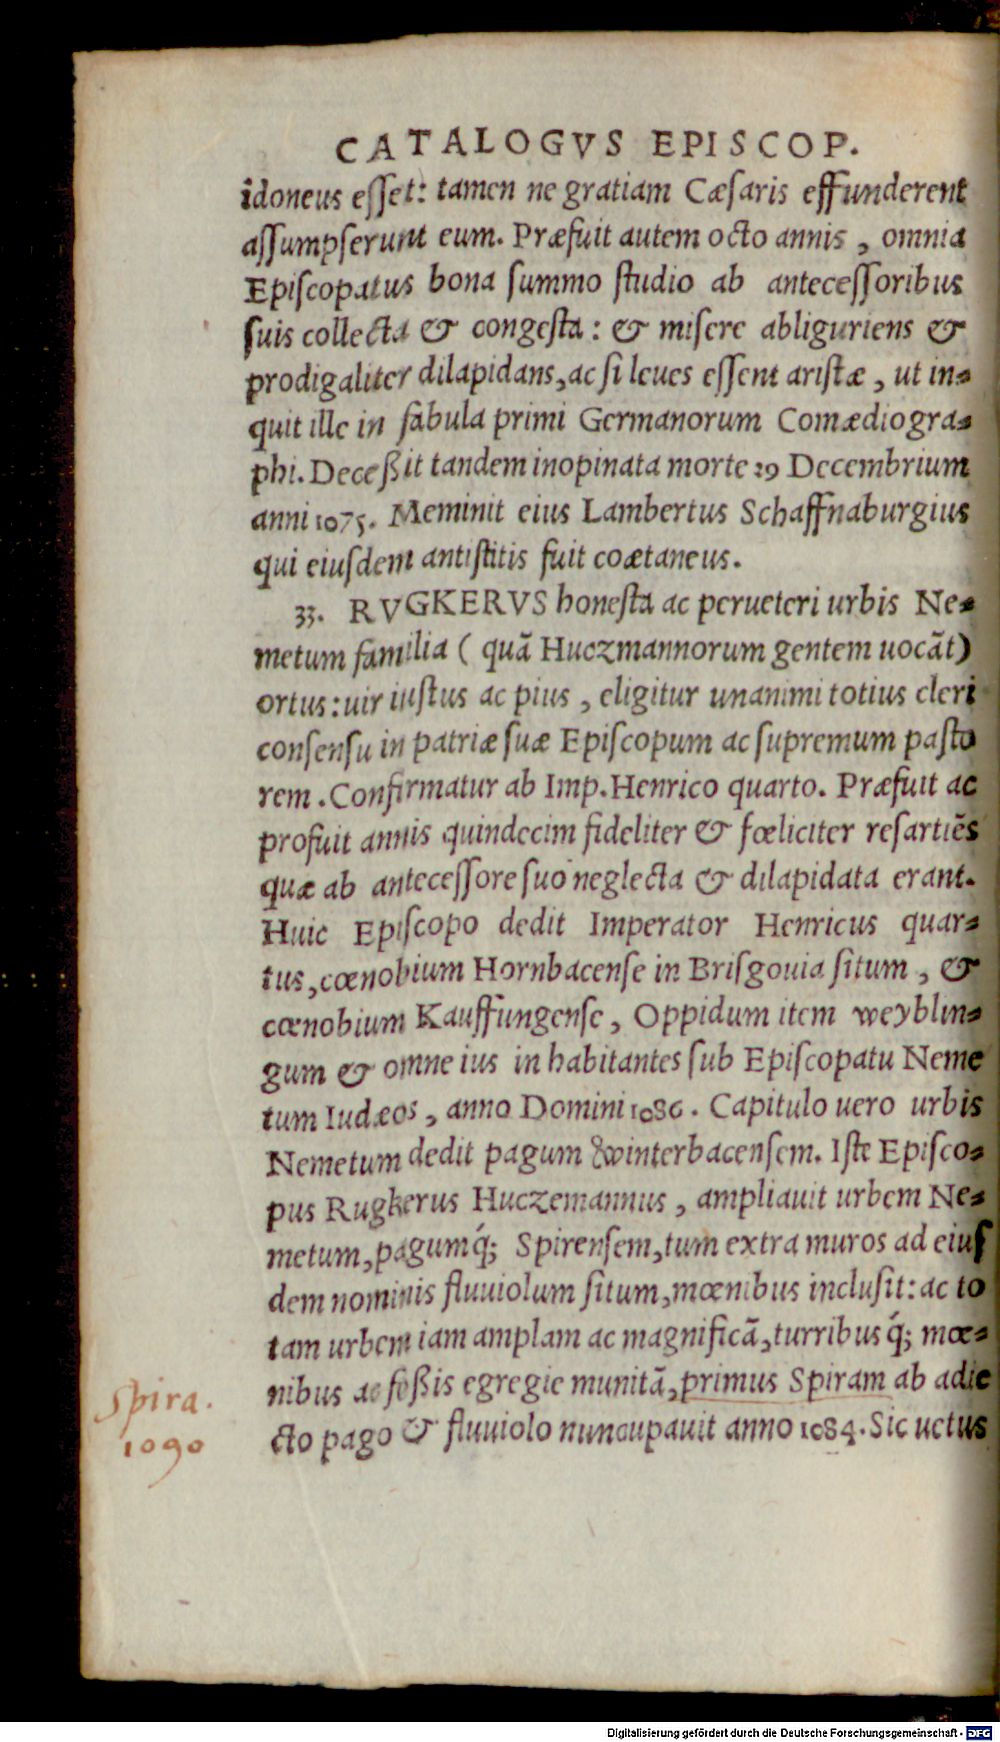 CATALOGVS EPISCOP.
idoneus eſſet: tamen ne gratiam Cæſaris effunderent
aſſumpſerunt eum. Præfuit autem octo annis, omnia
Epiſcopatus bona ſummo ſtudio ab anteceſſoribus
ſuis collecta & congeſta: & miſere abliguriens &
prodigaliter dilapidans, ac ſi leues eſſent ariſtæ, ut in-
quit ille in fabula primi Germanorum Comædiogra-
phi. Deceßit tandem inopinata morte 29 Decembrium
anni 1075. Meminit eius Lambertus Schaffnaburgius
qui eiuſdem antiſtitis fuit coætaneus.
33. RVGKERVS honeſta ac perueteri urbis Ne-
metum familia ( quā Huczmannorum gentem uocāt)
ortus: uir iuſtus ac pius, eligitur unanimi totius cleri
conſenſu in patriæ ſuæ Epiſcopum ac ſupremum paſto
rem. Confirmatur ab Imp. Henrico quarto. Præfuit ac
profuit annis quindecim fideliter & fœliciter reſartiēs
quæ ab anteceſſore ſuo neglecta & dilapidata erant.
Huic Epiſcopo dedit Imperator Henricus quar-
tus, cœnobium Hornbacenſe in Briſgouia ſitum, &
cœnobium Kauffungenſe, Oppidum item weyblin-
gum & omne ius in habitantes ſub Epiſcopatu Neme
tum Iudæos, anno Domini 1086. Capitulo uero urbis
Nemetum dedit pagum winterbacenſem. Iſte Epiſco-
pus Rugkerus Huczemannus, ampliauit urbem Ne-
metum, pagumq́; Spirenſem, tum extra muros ad eiuſ
dem nominis fluuiolum ſitum, mœnibus incluſit: ac to
tam urbem iam amplam ac magnificā, turribus q́; mœ-
nibus ac foßis egregie munitā, primus Spiram ab adie
cto pago & fluuiolo nuncupauit anno 1084. Sic uetus
Spira.
1090
Digitalisierung gefördert durch die Deutsche Forschungsgemeinschaft - DFG